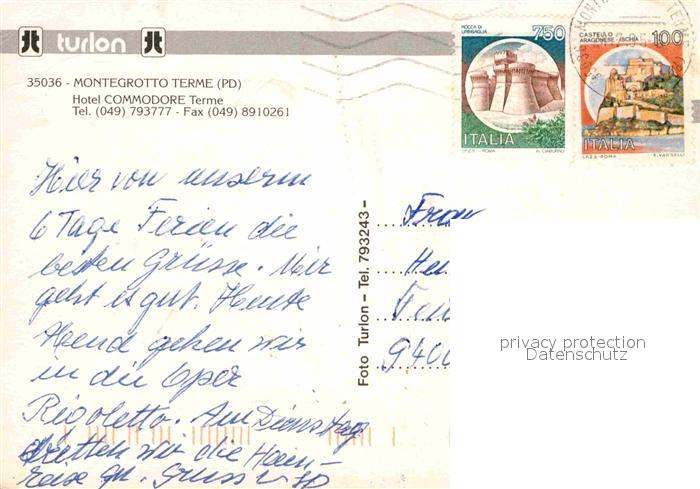 turlon
35036 - MONTEGROTTO TERME (PD)
Hotel COMMODORE Terme
Tel. (049) 793777 - Fax (049) 8910261
ROCCA DI URBISAGLIA 750
ITALIA
I.P.Z.S. - ROMA
CASTELLO ARAGONESE - ISCHIA 100
ITALIA
I.P.Z.S. - ROMA E. VANGELLI
Hier von unserm
6 Tage Ferien die
besten Grüsse. Mir
geht es gut. Heute
Abend gehen wir
in die Oper
Rigoletto. Am Dienstag
tretten wir die Heim-
reise an. Gruss
Foto Turlon - Tel. 793243 -
Frau
9400
privacy protection
Datenschutz